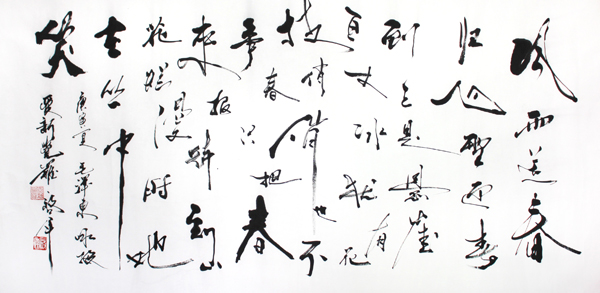 风雨送春
归飞雪迎春
到已是悬崖
百丈冰犹有花
枝俏俏也不
争春只把春
来报待到山
花烂漫时她
在丛中
笑
庚寅夏 毛泽东咏梅
爱新觉罗